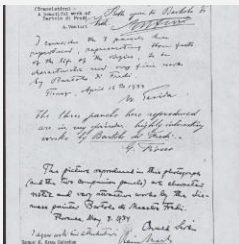 (Translation)
a beautiful work of
Bartolo di Fredi.
A. Venturi
I consider the 3 panels here
reproduced, representing three facts
of the life of the Virgin, to be
characteristic and very fine work
by Bartolo di Fredi.
April 15th 1939
The three panels here reproduced
are in my opinion, highly interesting
works of Bartolo di Fredi.
G. Fiocco
The picture reproduced in this photograph
(and the two companion panels) are characteristic
and very attractive works by the
Sienese painter Bartolo di Maestro Fredi.
Florence May 3. 1939
I agree with